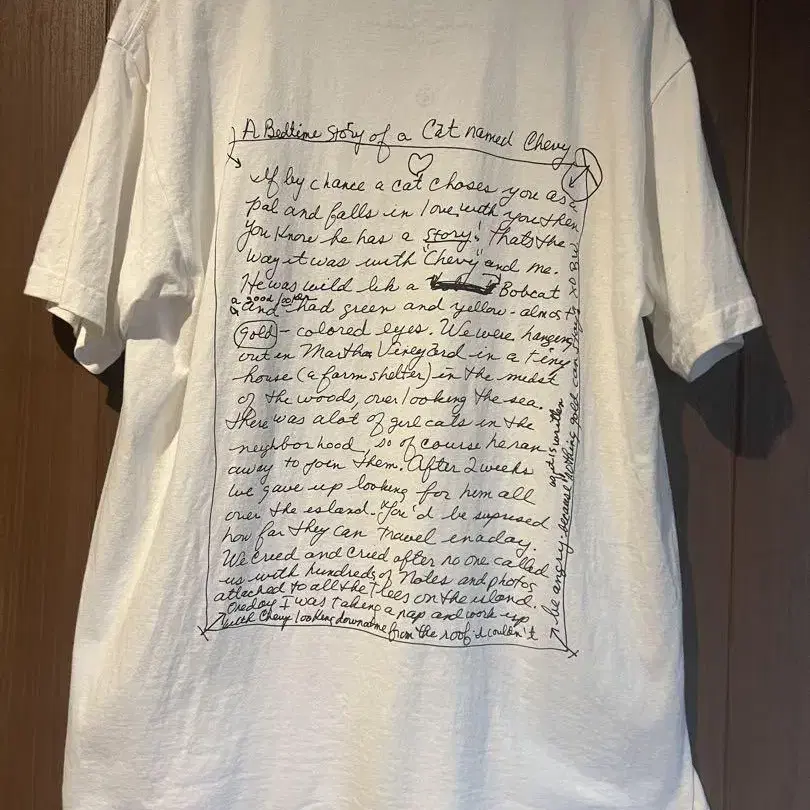 A Bedtime story of a Cat named Chevy
If by chance a cat choses you as a
pal and falls in love with you then
you know he has a story! Thats the
way it was with "Chevy" and me.
He was wild lik a Bobcat
a good looker
and had green and yellow - almost
gold - colored eyes. We were hanging
out in Martha Vineyard in a tiny
house (a farm shelter) in the midst
of the woods, over looking the sea.
There was alot of girl cats in the
neighborhood, so of course he ran
away to join them. After 2 weeks
we gave up looking for him all
over the island. You'd be suprised
how far they can travel in a day.
We cried and cried after no one called
us with hundreds of Notes and photos
attached to all the trees on the island.
One day I was taking a nap and work up
with Chevy looking down at me from the roof. I couldn't
be angry - because nothing gold can stay. XO
as it is written